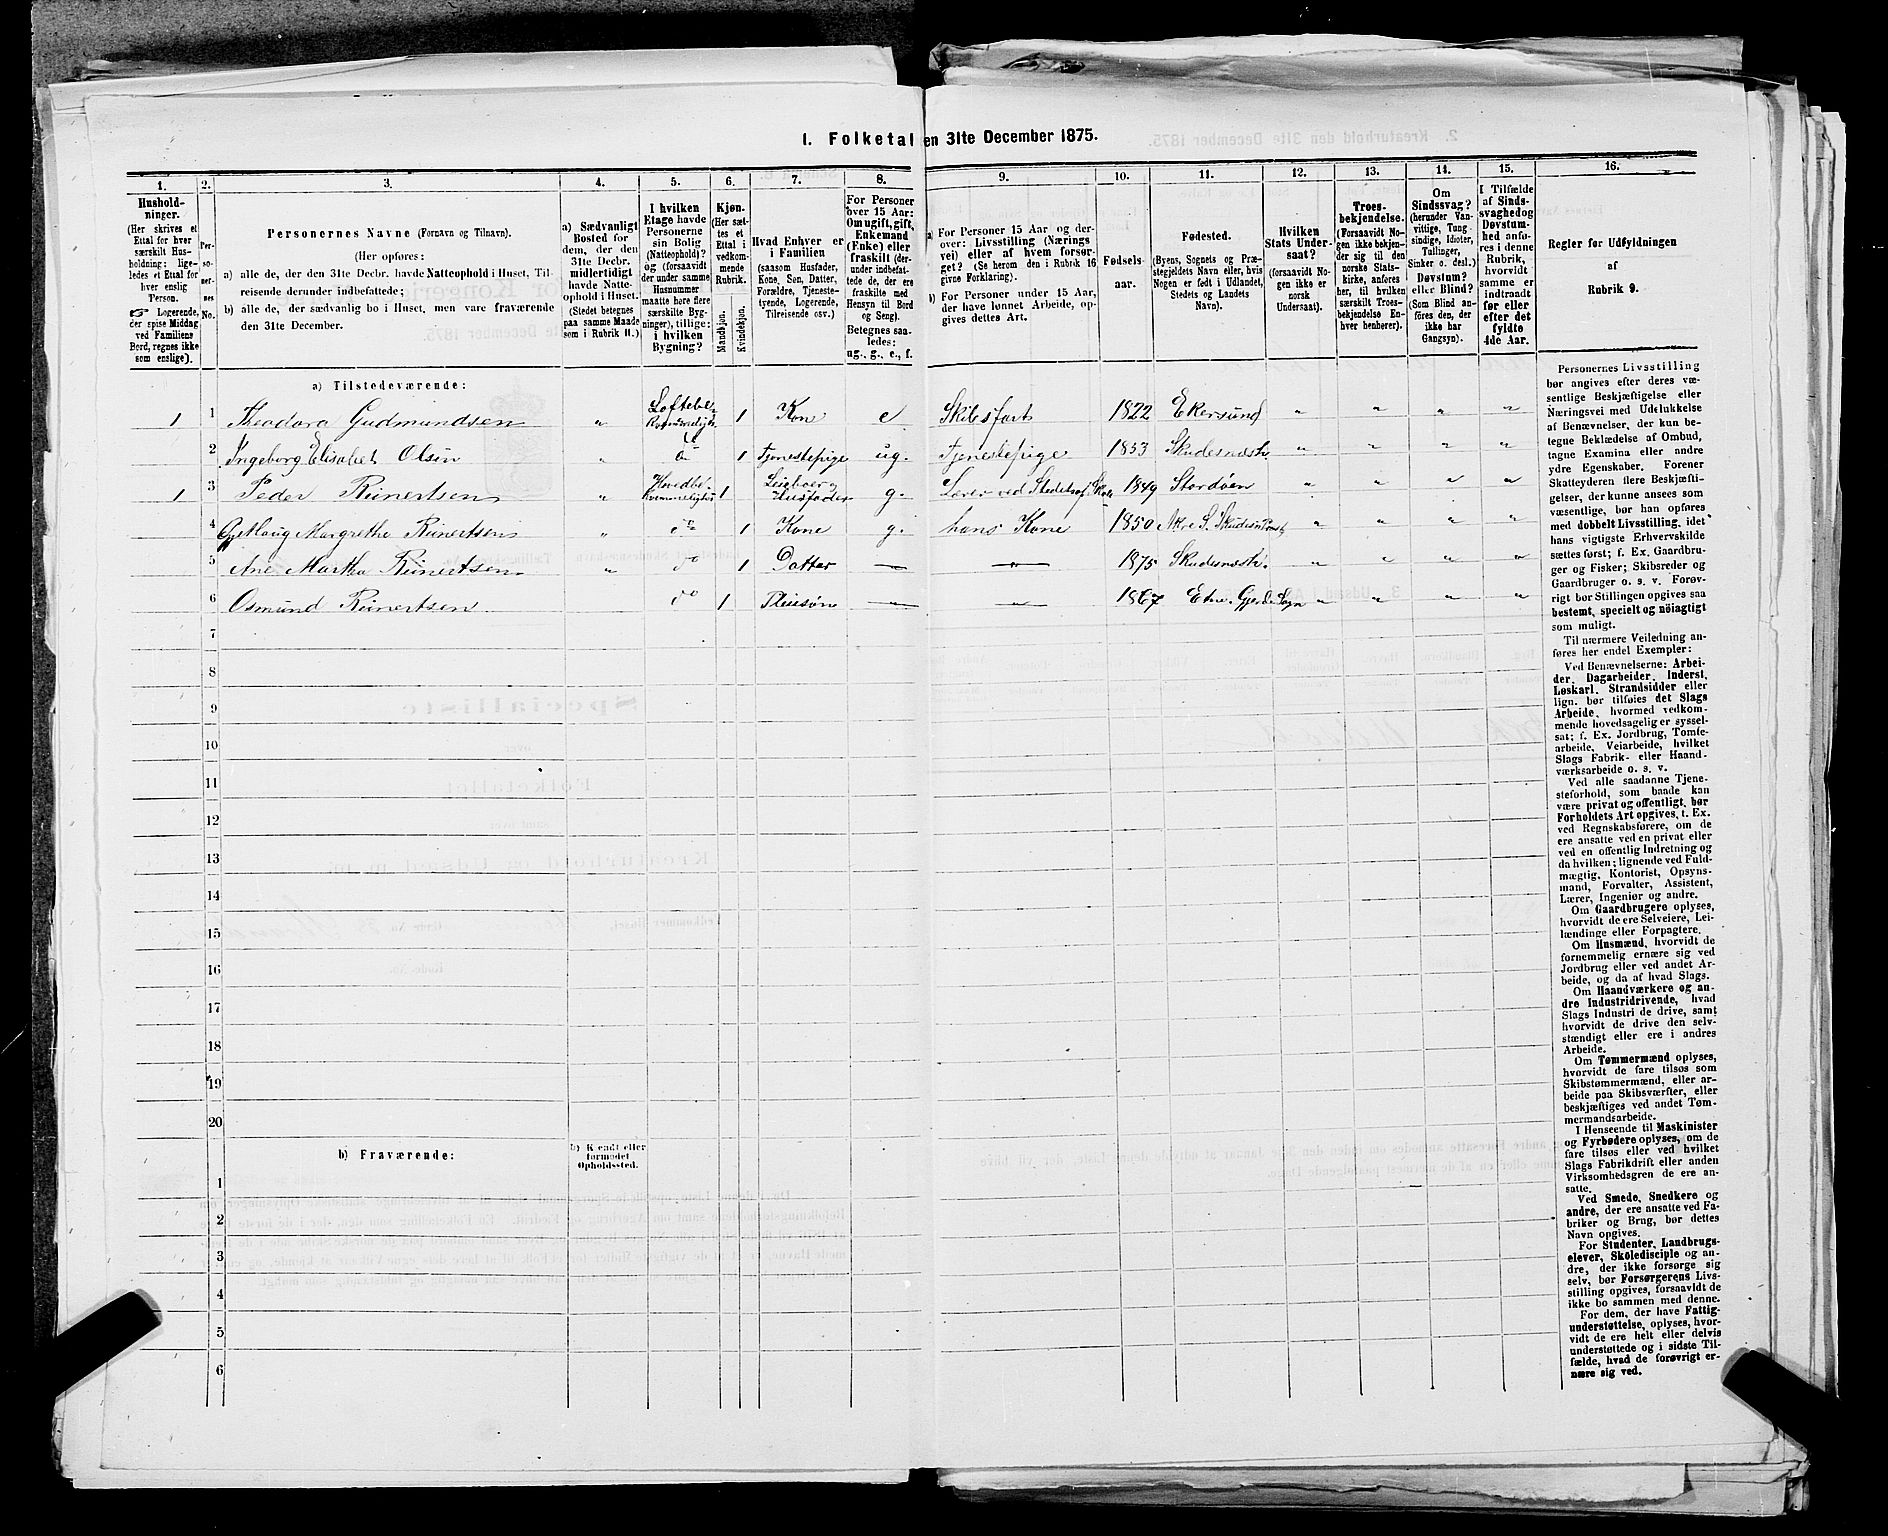 1. Folketal den 31te December 1875.
1. 2. 3. 4. 5. 6. 7. 8. 9. 10. 11. 12. 13. 14. 15. 16.
Hushold-
ninger.
(Her skrives et
Ettal for hver
særskilt Hus-
holdning; lige-
ledes et Ettal for
hver enslig
Person.
☞ Logerende,
der spise Middag
ved Familiens
Bord, regnes ikke
som enslige).
Per-
so-
ner-
nes
No.
Personernes Navne (Fornavn og Tilnavn).
(Her opføres:
a) alle de, der den 31te Decbr. havde Natteophold i Huset, Til-
reisende derunder indbefattede;
b) alle de, der sædvanlig bo i Huset, men vare fraværende
den 31te December.
a) Sædvanligt
Bosted for
dem, der den
31te Decbr.
midlertidigt
havde Natte-
ophold i Huset.
(Stedet betegnes
paa samme Maade
som i Rubrik 11.)
I hvilken
Etage havde
Personerne
sin Bolig
(Natteophold)?
og (forsaavidt
der under samme
Husnummer
maatte høre flere
særskilte Byg-
ninger), tillige:
i hvilken
Bygning?
Kjøn.
(Her sæt-
tes et
Ettal i
vedkom-
mende
Rubrik.
Mandkjøn.
Kvindekjøn.
Hvad Enhver er
i Familien
(saasom Husfader,
Kone, Søn, Datter,
Forældre, Tjeneste-
tyende, Logerende,
Tilreisende osv.)
For Personer
over 15 Aar:
Om ugift, gift,
Enkemand
(Enke) eller
fraskilt (der-
under indbefat-
tede de, der ere
fraskilte med
Hensyn til Bord
og Seng).
Betegnes saa-
ledes:
ug., g., e., f.
a) For Personer 15 Aar og der-
over: Livsstilling (Nærings
vei) eller af hvem forsør-
get? (Se herom den i Rubrik 16
givne Forklaring).
b) For Personer under 15 Aar,
der have lønnet Arbeide, op-
gives dettes Art.
Fødsels-
aar.
Fødested.
(Byens, Sognets og Præ-
stegjeldets Navn eller, hvis
Nogen er født i Udlandet,
Stedets og Landets
Navn).
Hvilken
Stats Under-
saat?
(forsaavidt No-
gen ikke er
norsk
Undersaat).
Troes-
bekjendelse.
(Forsaavidt No-
gen ikke bekjen-
der sig til den
norske Stats-
kirke, anføres
her, til hvilken
særskilt Troes-
bekjendelse En-
hver henhører).
Om
Sindssvag?
(herunder Van-
vittige, Tung
sindige, Idioter,
Tullinger,
Sinker o. desl.)
Døvstum?
eller Blind?
(Som Blind an-
føres den, der
ikke har
Gangsyn).
I Tilfælde
af Sinds-
svaghed og
Døvstum-
hed anfø-
res i denne
Rubrik,
hvorvidt
samme er
indtraadt
før eller
efter det
fyldte
4de Aar.
Regler før Udfyldningen
af
Rubrik 9.
a) Tilstedeværende:
1 1 Theodora Gudmundsen „ Loftebe-kvemmelighe 1 Kone e Skibsfart 1822 Ekersund „ „ „ „
2 Ingeborg Elisabet Olsen „ 1 Tjenestepige ug. Tjenestepige 1853 Skudesnæsh. „ „ „ „
1 3 Peder Reinertsen „ Hovedbe-kvemmelighed 1 Leieboer og Husfader g. Lærer ved 1849 Stordøen „ „ „ „
4 Margrethe Reinertsen „ do 1 Kone g. hans Kone 1850 „ „ „ „
5 Ane Martha Reinertsen „ do 1 Datter — „ 1875 Skudesnæsh. „ „ „ „
6 Osmund Reinertsen do 1 Pleiesøn — „ 1867 Etne. Gjerde Sogn „ „ „ „
7
8
9
10
11
12
13
14
15
16
17
18
19
20
b) Fraværende:
b) Kendt eller
formodet
Opholdssted.
1
2
3
4
5
6
Personernes Livsstilling
bør angives efter deres væ-
sentlige Beskjæftigelse eller
Næringsvei med Udelukkelse
af Benævnelser, der kun be-
tegne Beklædelse af Ombud,
tagne Examina eller andre
ydre Egenskaber. Forener
Skatteyderen flere Beskjæfti-
gelser, der kunne ansees som
væsentlige, bør han opføres
med dobbelt Livsstilling, idet
hans vigtigste Erhvervskilde
sættes først; f. Ex. Gaardbru-
ger og Fisker; Skibsreder og
Gaardbruger o. s. v. Forøv-
rigt bør Stillingen opgives saa
bestemt, specielt og nöiagtigt
som muligt.
Til nærmere Veiledning an-
føres her endel Exempler:
Ved Benævnelserne: Arbei-
der, Dagarbeider, Inderst,
Løskarl, Strandsidder eller
lign. bør tilføies det Slags
Arbeide, hvormed vedkom-
mende hovedsagelig er syssel-
sat; f. Ex. Jordbrug, Tomte-
arbeide, Veiarbeide, hvilket
Slags Fabrik- eller Haand-
værksarbeide o. s. v.
Ved alle saadanne Tjene-
steforhold, som baade kan
være privat og offentligt, bør
Forholdets Art opgives, t. Ex.
ved Regnskabsførere, om de
ere ansatte ved en privat eller
ved en offentlig Indretning og
da hvilken; lignende ved Fuld-
mægtig, Kontorist, Opsyns-
mand, Forvalter, Assistent,
Lærer, Ingeniør og andre.
Om Gaardbrugere oplyses,
hvorvidt de ere Selveiere, Lei-
lændinge eller Forpagtere.
Om Husmænd, hvorvidt de
fornemmelig ernære sig ved
Jordbrug eller ved andet Ar-
beide, og da af hvad Slags.
Om Haandværkere og an-
dre Industridrivende, hvad
Slags Industri de drive, samt
hvorvidt de drive den selv-
stændigt eller ere i andres
Arbeide.
Om Tømmermænd oplyses,
hvorvidt de fare tilsøs som
Skibstømmermænd, eller ar-
beide paa Skibsværfter, eller
beskjæftiges ved andet Tøm-
mermandsarbeide.
I Henseende til Maskinister
og Fyrbødere oplyses, om de
fare tilsøs eller ved hvilket
Slags Fabrikdrift eller anden
Virksomhedsgren de ere an-
satte.
Ved Smede, Snedkere og
andre, der ere ansatte ved Fa-
briker og Brug, bør dettes
Navn opgives.
For Studenter, Landbrugs-
elever, Skoledisciple og an-
dre, der ikke forsørge sig
selv, bør Forsørgerens Livs-
stilling opgives, forsaavidt de
ikke bo sammen med denne.
For dem, der have Fattig-
understøttelse, oplyses, hvor-
vidt de ere helt eller delvis
understøttede og i sidste Til-
fælde, hvad de forøvrigt er-
nære sig ved.